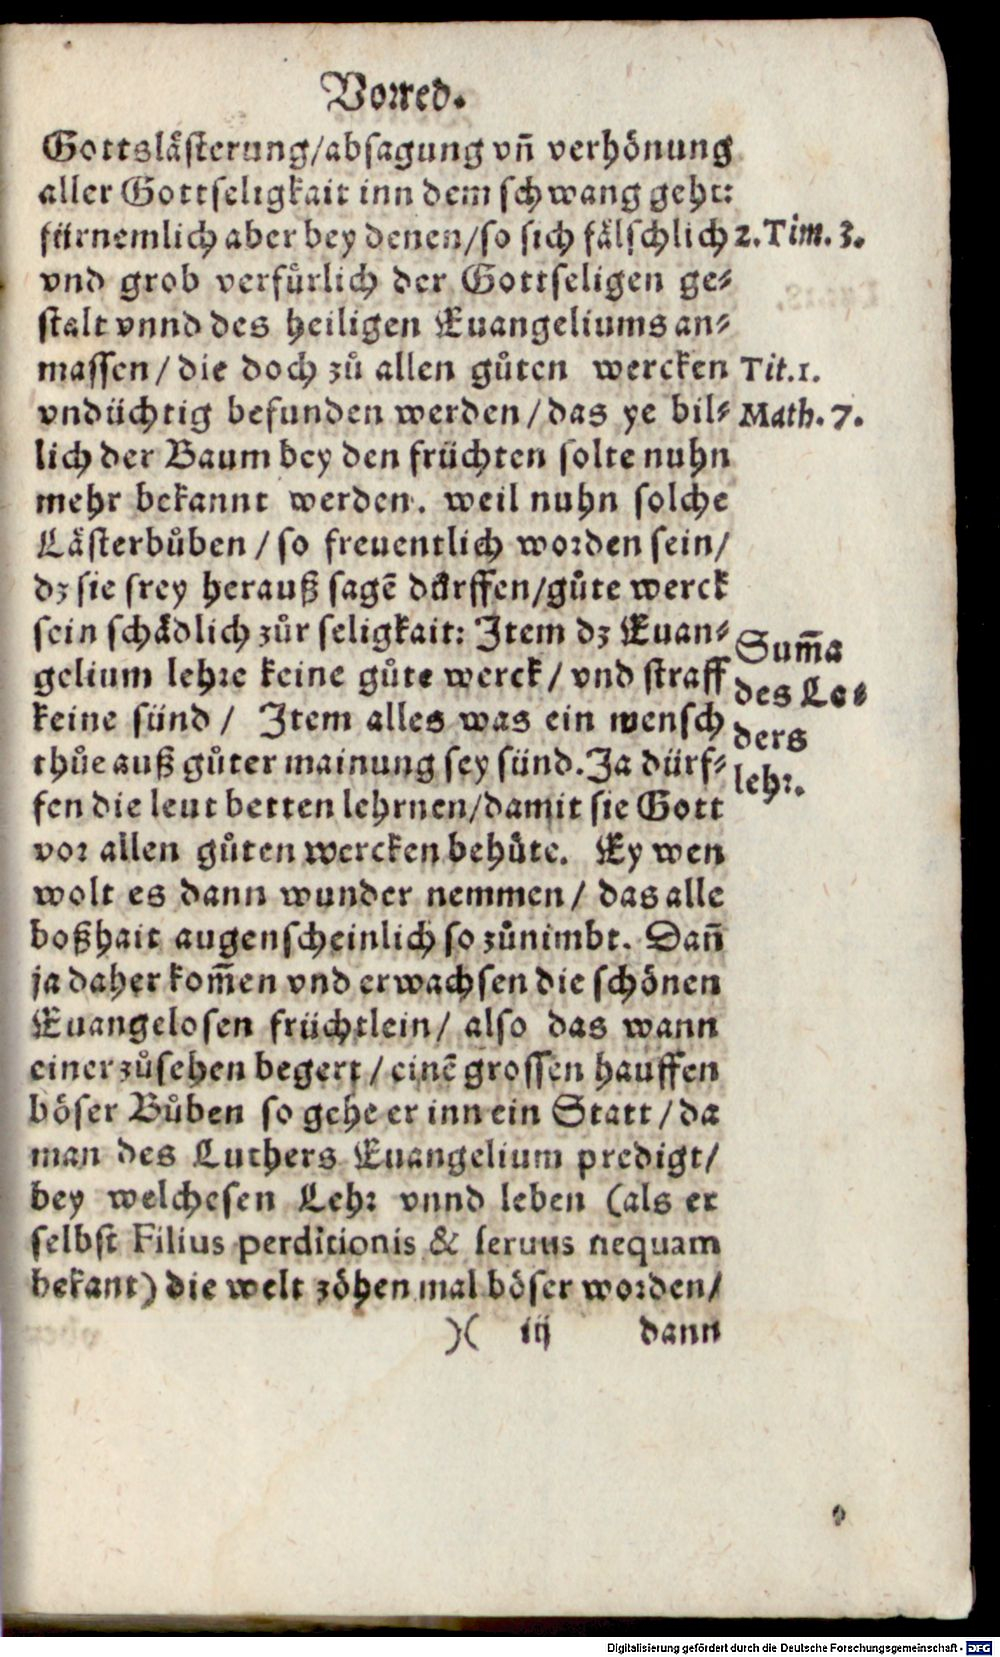 Vorred.
Gottslästerung/absagung vñ verhönung
aller Gottseligkait inn dem schwang geht:
fürnemlich aber bey denen/so sich fälschlich
2. Tim. 3.
vnd grob verfůrlich der Gottseligen ge⸗
stalt vnnd des heiligen Euangeliums an⸗
massen/die doch zů allen gůten wercken
Tit. 1.
vndüchtig befunden werden/das ye bil⸗
Math. 7.
lich der Baum bey den früchten solte nuhn
mehr bekannt werden. weil nuhn solche
Lästerbůben/so freuentlich worden sein/
dz sie frey herauß sagē dürffen/gůte werck
sein schädlich zůr seligkait: Item dz Euan⸗
gelium lehre keine gůte werck/vnd straff
keine sünd/ Item alles was ein mensch
thůe auß gůter mainung sey sünd. Ja dürf⸗
Sum̃a
des Le⸗
ders
lehr.
fen die leut betten lehrnen/damit sie Gott
vor allen gůten wercken behůte. Ey wen
wolt es dann wunder nemmen/das alle
boßhait augenscheinlich so zůnimbt. Dañ
ja daher kom̃en vnd erwachsen die schönen
Euangelosen früchtlein/also das wann
einer zůsehen begert/einē grossen hauffen
böser Bůben so gehe er inn ein Statt/da
man des Luthers Euangelium predigt/
bey welchesen Lehr vnnd leben (als er
selbst Filius perditionis & seruus nequam
bekant) die welt zöhen mal böser worden/
)( iij dann
Digitalisierung gefördert durch die Deutsche Forschungsgemeinschaft - DFG